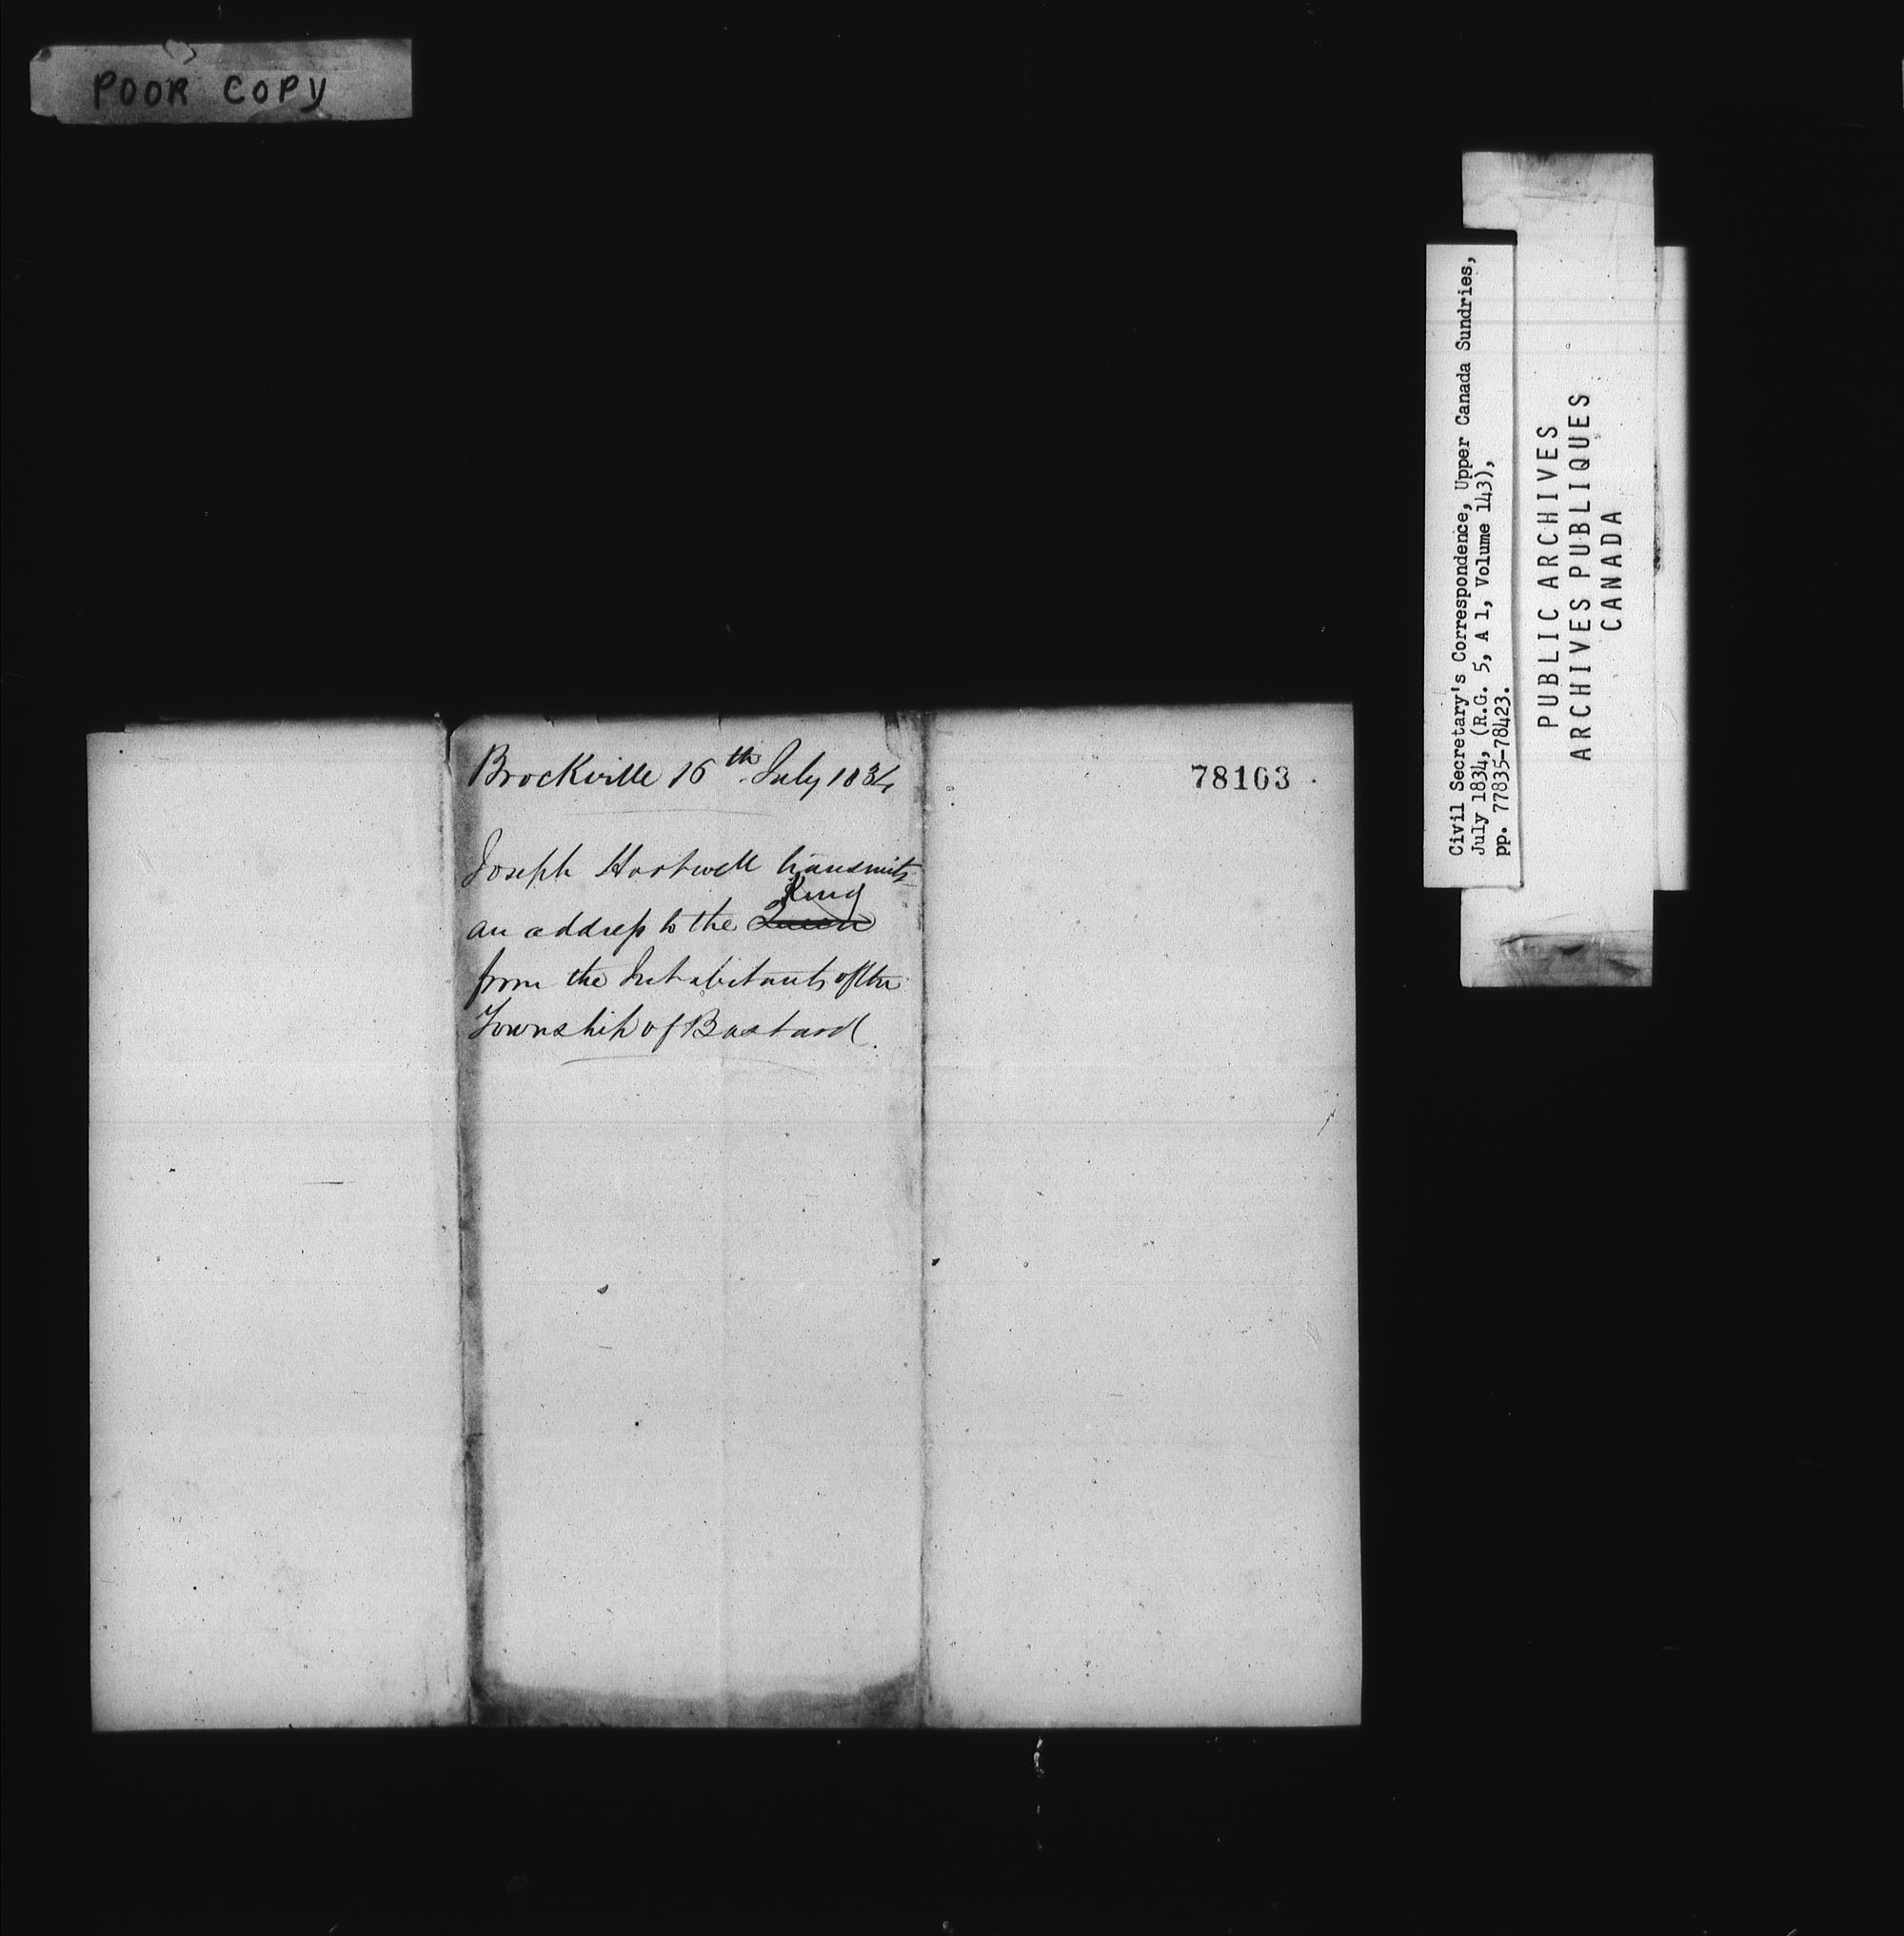 POOR COPY
Brockville 16th July 1834
78163
Joseph Hartwell transmits
King
an address to the Queen
from the Inhabitants of the
Township of Bastard.
Civil Secretary's Correspondence, Upper Canada Sundries,
July 1834, (R.G. 5, A 1, Volume 143),
pp. 77835-78423.
PUBLIC ARCHIVES
ARCHIVES PUBLIQUES
CANADA